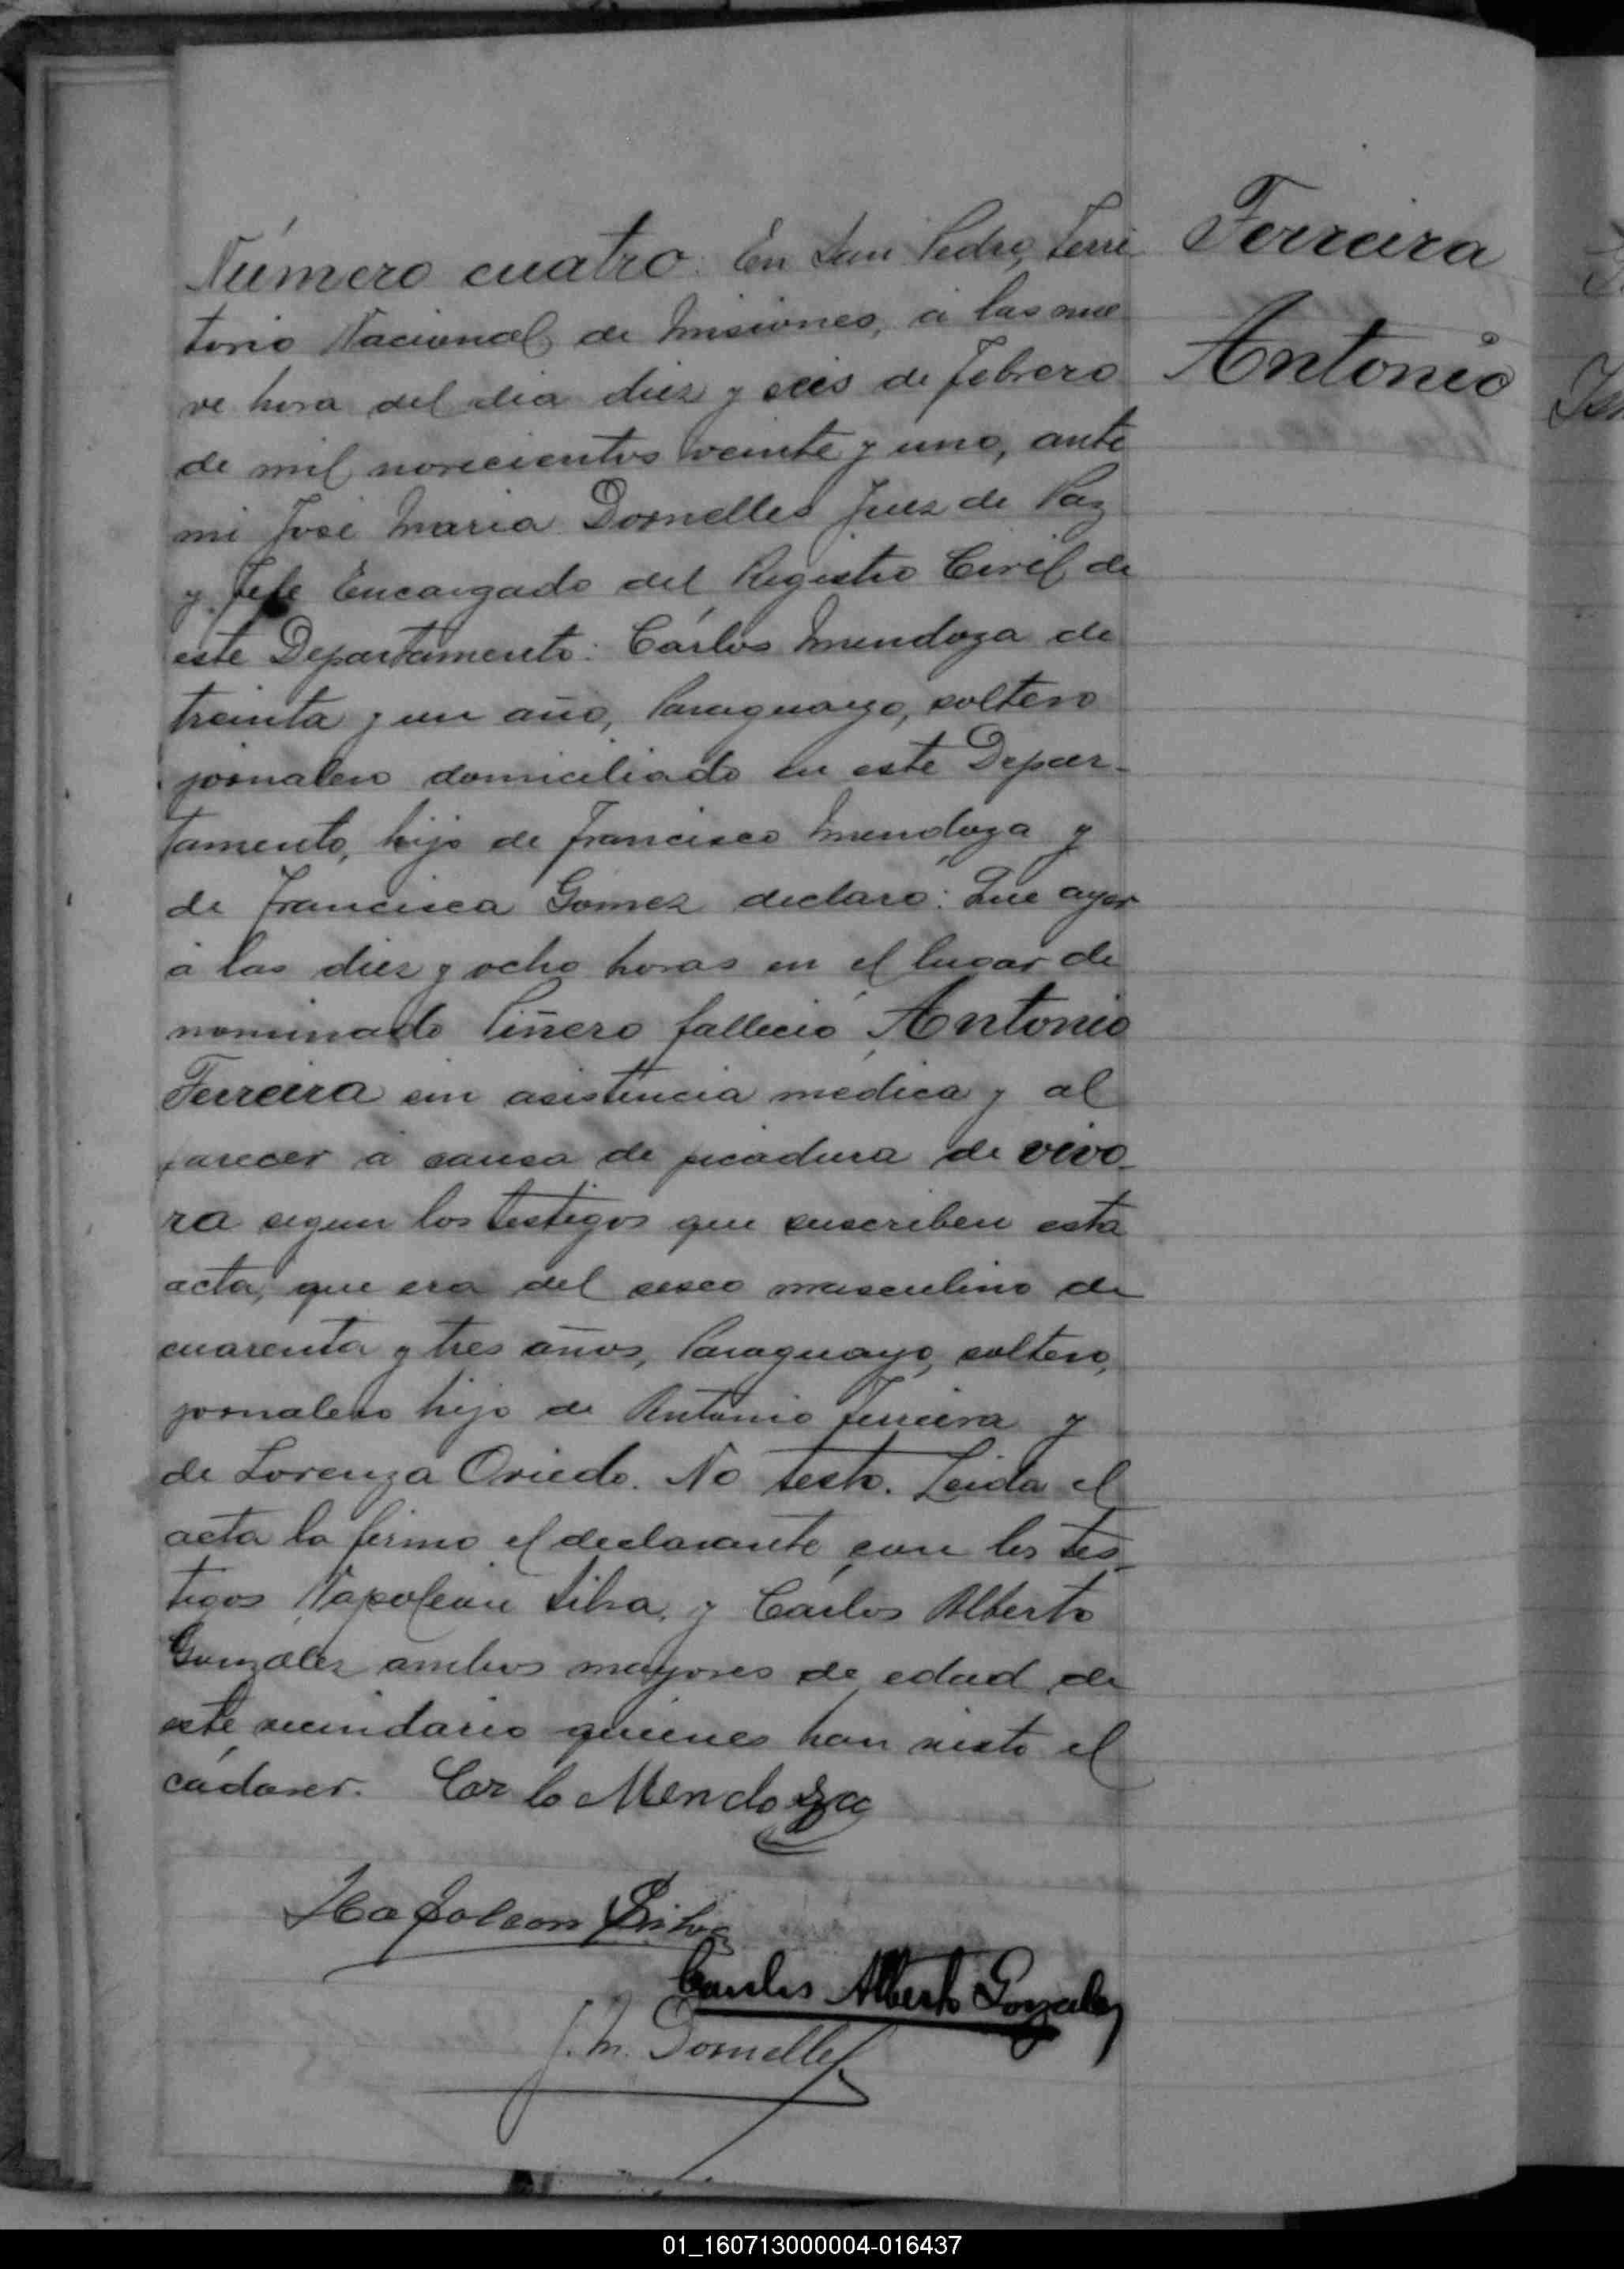 Número cuatro. En San Pedro, Terri
torio Nacional de Misiones, á las nue
ve hora del dia diez y seis de febrero
de mil novecientos veinte y uno, ante
mi José Maria Dornelles Juez de Paz
y Jefe Encargado del Registro Civil de
este Departamento: Cárlos Mendoza de
treinta y un año, Paraguayo, soltero
jornalero domiciliado en este Depar-
tamento, hijo de Francisco Mendoza y
de Francisca Gomez declaro: Que ayer
á las diez y ocho horas en el lugar de
nominado Piñero falleció Antonio
Ferreira sin asistencia médica y al
parecer á causa de picadura de vivo-
ra segun los testigos que suscriben esta
acta, que era del sesco masculino de
cuarenta y tres años, Paraguayo, soltero,
jornalero hijo de Antonio Ferreira y
de Lorenza Oviedo. No testo. Leida el
acta la firmo el declarante con los tes-
tigos Napoleón Silva, y Carlos Alberto
Gonzáles ambos mayores de edad de
este vecindario quienes han visto el
cádaver. Carlo Mendoza
Napoleon Silva
Carlos Alberto Gonzalez
J. M. Dornelles
Ferreira
Antonio
01_160713000004-016437